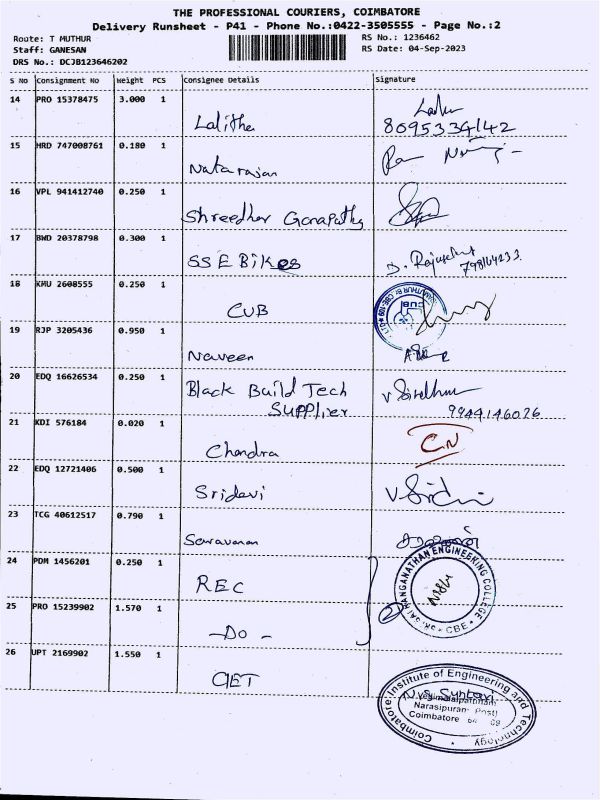 THE PROFESSIONAL COURIERS, COIMBATORE
Delivery Runsheet - P41 - Phone No.:0422-3505555 - Page No.:2
Route: T MUTHUR
Staff: GANESAN
DRS No.: DCJB123646202
RS No.: 1236462
RS Date: 04-Sep-2023
S No Consignment No Weight PCS Consignee Details Signature
14 PRO 15378475 3.000 1 Lalitha
8095334142
15 HRD 747008761 0.180 1 Natarajan
16 VPL 941412740 0.250 1 Shreedhar Ganapathy
17 BWD 20378798 0.300 1 SS E Bikes
18 KMU 2608555 0.250 1 CUB
CUB
19 RJP 3205436 0.950 1 Naveen
20 EDQ 16626534 0.250 1 Black Build Tech
Supplier 9944146026
21 KDI 576184 0.020 1 Chandra CN
22 EDQ 12721406 0.500 1 Sridevi V Sridevi
23 TCG 40612517 0.790 1 Saravanan சரவணன்
24 PDM 1456201 0.250 1 REC
RANGANATHAN ENGINEERING COLLEGE
CBE
25 PRO 15239902 1.570 1 -Do- 2
26 UPT 2169902 1.550 1 CIET
Coimbatore Institute of Engineering and Technology
Narasipuram Post
Coimbatore